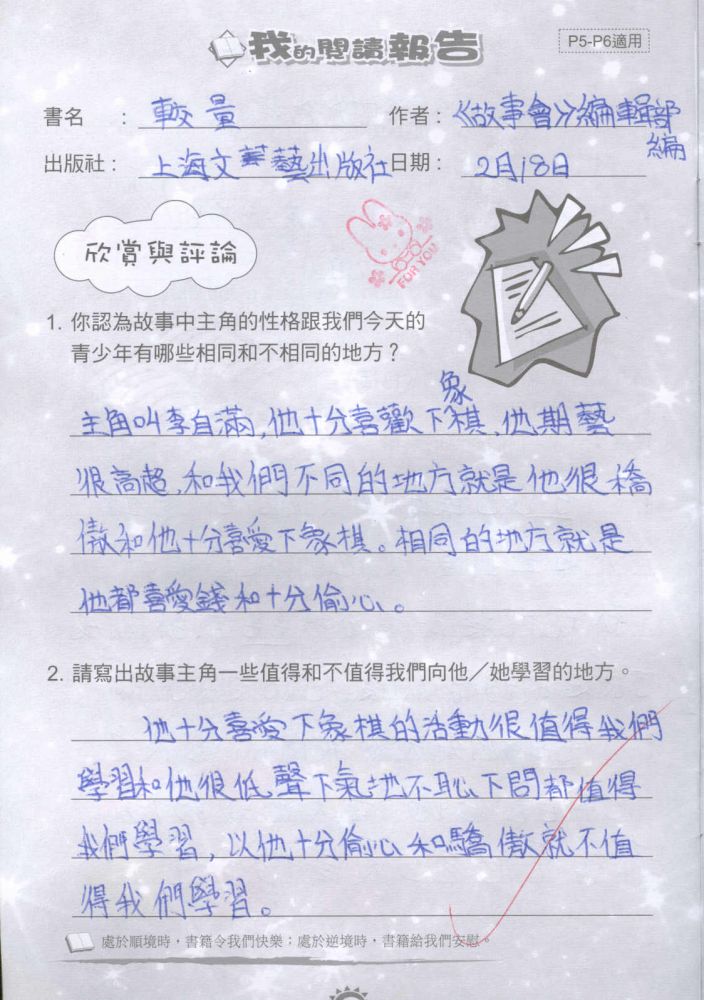 我的閱讀報告
P5-P6適用
書名 : 較量 作者 : 《故事會》編輯部編
出版社 : 上海文藝出版社 日期 : 2月18日
欣賞與評論
FOR YOU
1. 你認為故事中主角的性格跟我們今天的
青少年有哪些相同和不相同的地方？
主角叫李自滿,他十分喜歡下象棋,他期藝
很高超,和我們不同的地方就是他很橋
傲和他十分喜愛下象棋。相同的地方就是
他都喜愛錢和十分偷心。
2. 請寫出故事主角一些值得和不值得我們向他／她學習的地方。
他十分喜愛下象棋的活動很值得我們
學習和他很低聲下氣地不恥下問都值得
我們學習,以他十分偷心和驕傲就不值
得我們學習。
處於順境時，書籍令我們快樂；處於逆境時，書籍給我們安慰。